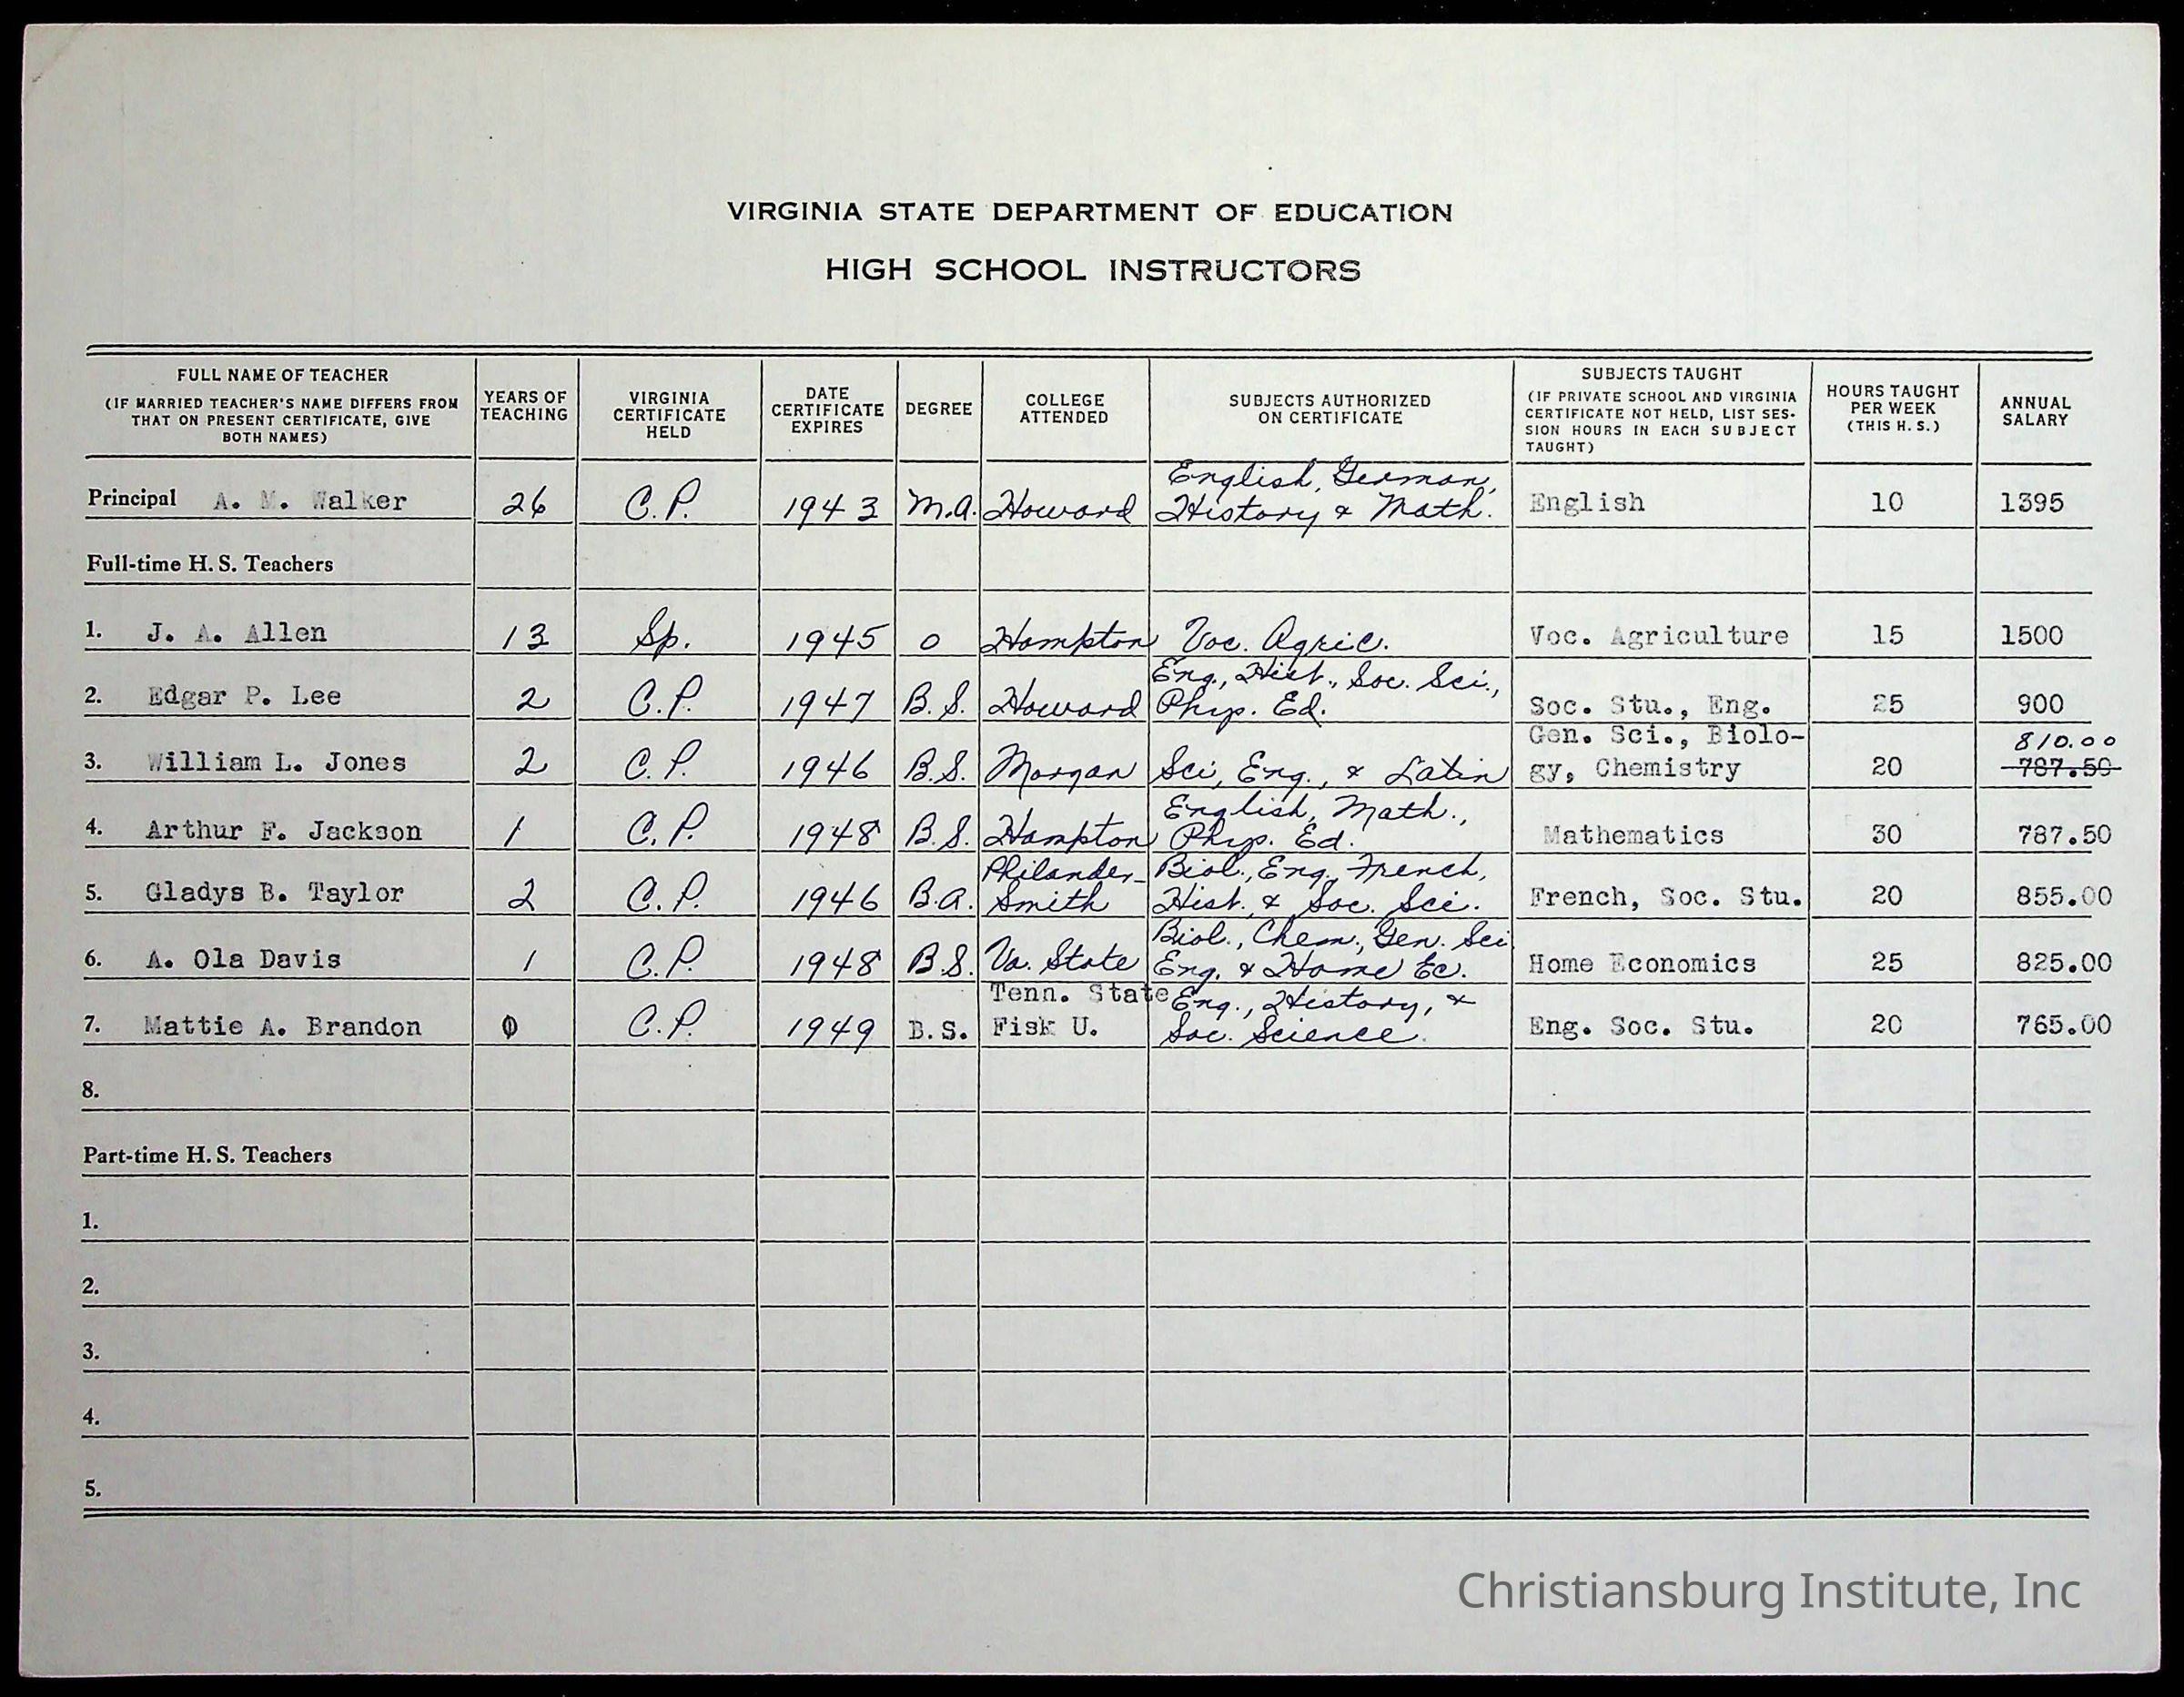 VIRGINIA STATE DEPARTMENT OF EDUCATION
HIGH SCHOOL INSTRUCTORS
FULL NAME OF TEACHER
(IF MARRIED TEACHER'S NAME DIFFERS FROM
THAT ON PRESENT CERTIFICATE, GIVE
BOTH NAMES)
YEARS OF
TEACHING
VIRGINIA
CERTIFICATE
HELD
DATE
CERTIFICATE
EXPIRES
DEGREE
COLLEGE
ATTENDED
SUBJECTS AUTHORIZED
ON CERTIFICATE
SUBJECTS TAUGHT
(IF PRIVATE SCHOOL AND VIRGINIA
CERTIFICATE NOT HELD, LIST SES-
SION HOURS IN EACH SUBJECT
TAUGHT)
HOURS TAUGHT
PER WEEK
(THIS H. S.)
ANNUAL
SALARY
English, German,
Principal A. M. Walker 26 C.P. 1943 M.A. Howard History & Math. English 10 1395
Full-time H. S. Teachers
1. J. A. Allen 13 Sp. 1945 0 Hampton Voc. Agric. Voc. Agriculture 15 1500
Eng., Hist., Soc. Sci.,
2. Edgar P. Lee 2 C.P. 1947 B.S. Howard Phys. Ed. Soc. Stu., Eng. 25 900
Gen. Sci., Biolo- 810.00
3. William L. Jones 2 C.P. 1946 B.S. Morgan Sci, Eng., & Latin gy, Chemistry 20 787.50
English, Math.,
4. Arthur F. Jackson 1 C.P. 1948 B.S. Hampton Phys. Ed. Mathematics 30 787.50
Philander- Biol., Eng., French,
5. Gladys B. Taylor 2 C.P. 1946 B.A. Smith Hist. & Soc. Sci. French, Soc. Stu. 20 855.00
Biol., Chem., Gen. Sci
6. A. Ola Davis 1 C.P. 1948 B.S. Va. State Eng. & Home Ec. Home Economics 25 825.00
Tenn. State Eng., History, &
7. Mattie A. Brandon 0 C.P. 1949 B.S. Fisk U. Soc. Science. Eng. Soc. Stu. 20 765.00
8.
Part-time H. S. Teachers
1.
2.
3.
4.
5.
Christiansburg Institute, Inc